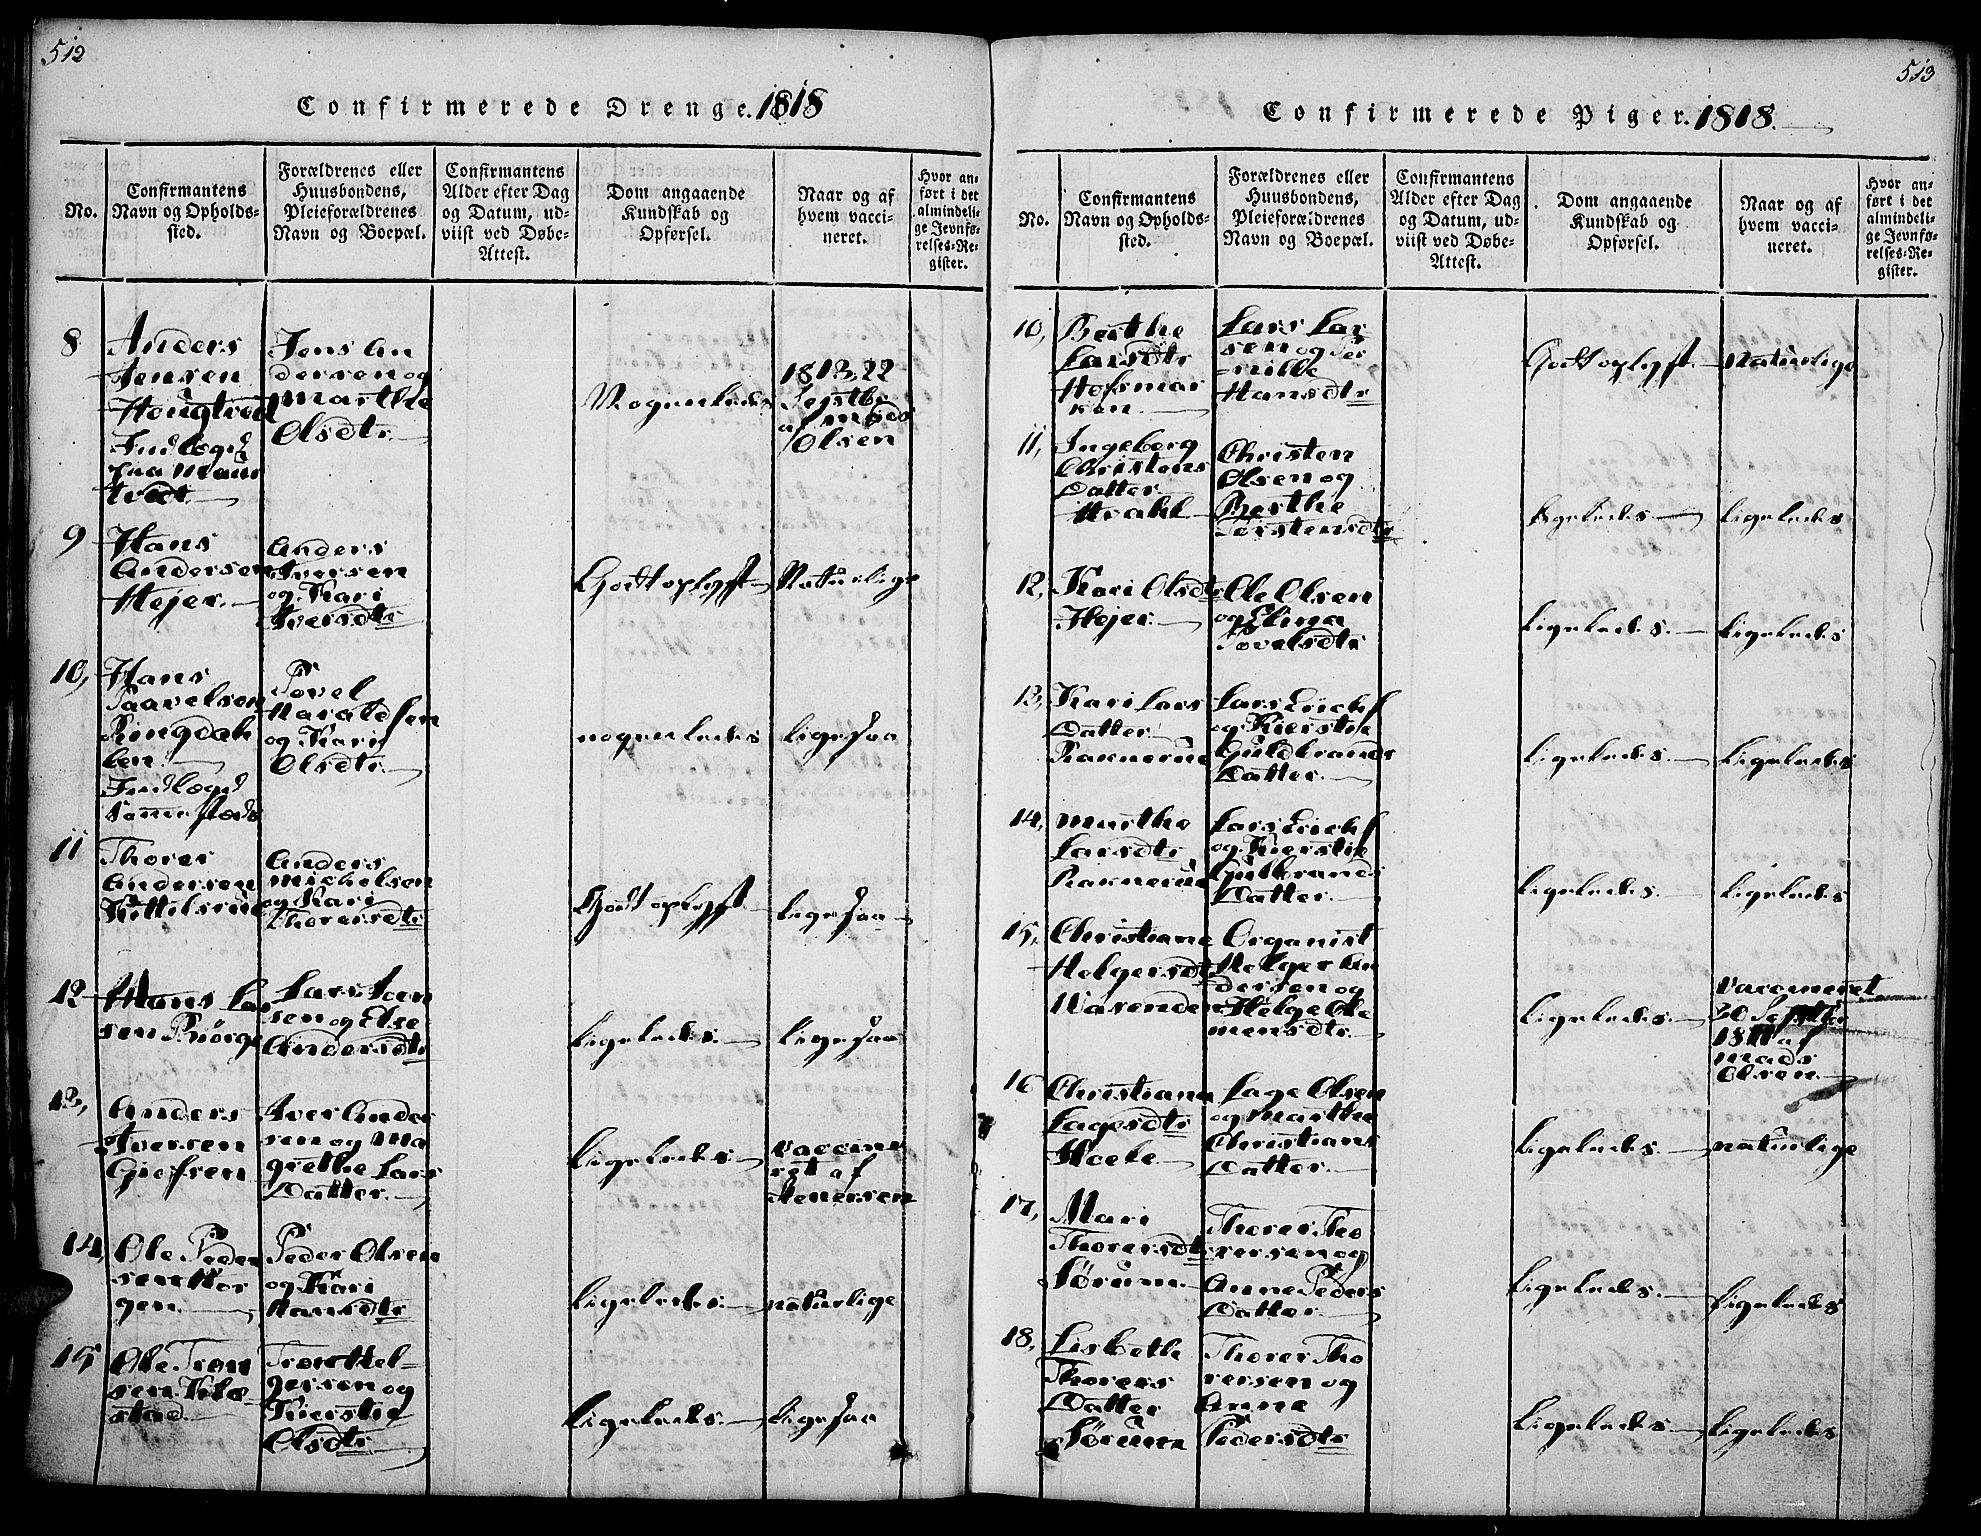 512
Confirmerede Drenge. 1818
No.
Confirmantens
Navn og Opholds-
sted.
Forældrenes eller
Huusbondens,
Pleieforældrenes
Navn og Boepæl.
Confirmantens
Alder efter Dag
og Datum, ud-
viist ved Døbe-
Attest.
Dom angaaende
Kundskab og
Opførsel.
Naar og af
hvem vacci-
neret.
Hvor an-
ført i det
almindeli-
ge Jevnfø-
relses-Re-
gister.
8
Anders
Jensen
Hougtved
Indlægd
paa
tvedt
Jens An
dersen og
Marthe
Olsdtr
Nogenledes
1813, 22
Septbr
af Mads
Olsen
9
Hans
Andersen
Hejer.
Anders
Iversen
og Kari
Iversdtr
Godt oplyst
Naturlige
10,
Hans
Paavelsen
Ringdah
len
Indlægd
Povel
Haraldsen
og Kari
Olsdtr
nogenledes
ligesaa
11
Thorer
Andersen
Kittelsrud
Anders
Michelsen
og Kari
Thorersdtr
Godt oplyst
ligesaa
12
Hans Lar
sen Børge
Lars Iver
sen og Else
Andersdtr
ligeledes.
ligesaa
13,
Anders
Iversen
Giefsen
Iver Ander
sen og Ma
grethe Lars
Datter
ligeledes
vaccine
ret af
Stenersen
14,
Ole Peder
sen Hor
gen
Peder Olsen
og Kari
Hansdtr
ligeledes.
naturlige
15
Ole Tron
sen Kilæ
stad
Tron Hel-
gersen og
Kierstie
Olsdtr
ligeledes.
ligesaa
513
Confirmerede Piger. 1818.
No.
Confirmantens
Navn og Opholds-
sted.
Forældrenes eller
Huusbondens,
Pleieforældrenes
Navn og Boepæl.
Confirmantens
Alder efter Dag
og Datum, ud-
viist ved Døbe-
Attest.
Dom angaaende
Kundskab og
Opførsel.
Naar og af
hvem vacci-
neret.
Hvor an-
ført i det
almindeli-
ge Jevnfø-
relses-Re-
gister.
10,
Berthe
Larsdtr
Hofsmar
ken
Lars Lar
sen og Per
nille
Hansdtr
Godt oplyst
Naturlige
11,
Ingeborg
Christens
Datter
Hrahl
Christen
Olsen og
Berthe
Torstensdtr
ligeledes
ligeledes
12,
Kari Olsdtr
Hejer
Ole Olsen
og Elina
Povelsdtr
ligeledes.
ligeledes
13,
Kari Lars
Datter
Raknerud
Lars Erichs
og Kierstie
Guldbrands
Datter
ligeledes.
ligeledes
14,
Marthe
Larsdtr
Raknerud
Lars Erichs
og Kierstie
Gulbrands
Datter
ligeledes.
ligeledes
15,
Christiane
Helgersdtr
Organist
Helger An
dersen og
Helge Cle
mensdtr
ligeledes.
vaccineret
30 Septbr
1811 af
Mads
Olsen
16
Christiane
Lagesdtr
Hoele
Lage Olsen
og Marthe
Christians
Datter
ligeledes.
naturlige
17,
Mari
Thorersdtr
Sørum
Thorer Tho
rersen og
Anne Peders
Datter
ligeledes.
ligeledes
18,
Lisbethe
Thorers
Datter
Sørum
Thorer Tho
rersen og
Anne
Pedersdtr
ligeledes.
ligeledes